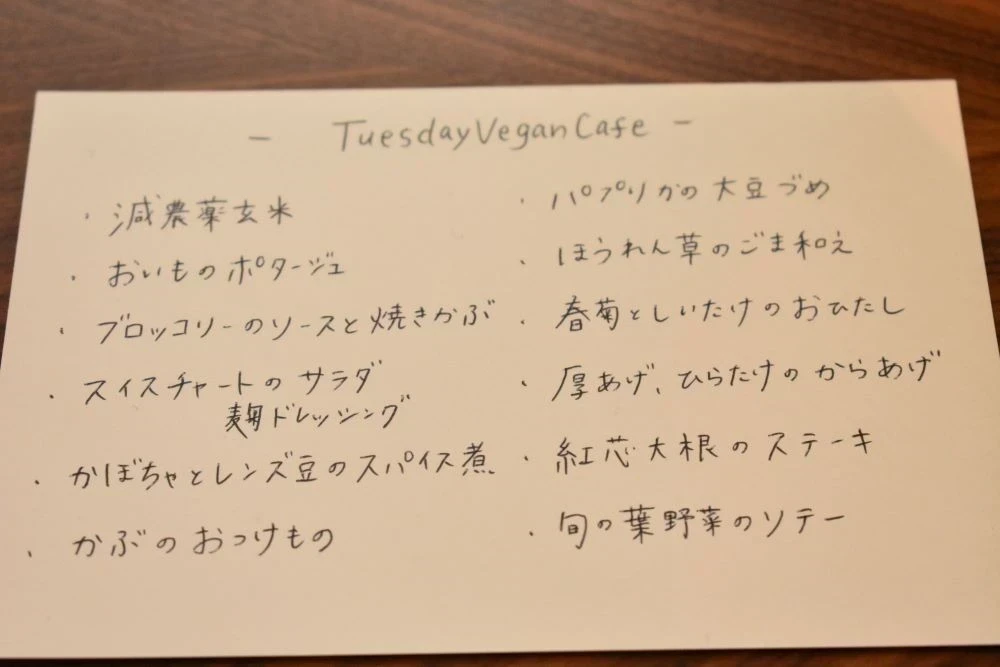 - Tuesday Vegan Cafe -
・減農薬玄米
・おいものポタージュ
・ブロッコリーのソースと焼きかぶ
・スイスチャートのサラダ
麹ドレッシング
・かぼちゃとレンズ豆のスパイス煮
・かぶのおつけもの
・パプリカの大豆づめ
・ほうれん草のごま和え
・春菊としいたけのおひたし
・厚あげ、ひらたけのからあげ
・紅芯大根のステーキ
・旬の葉野菜のソテー